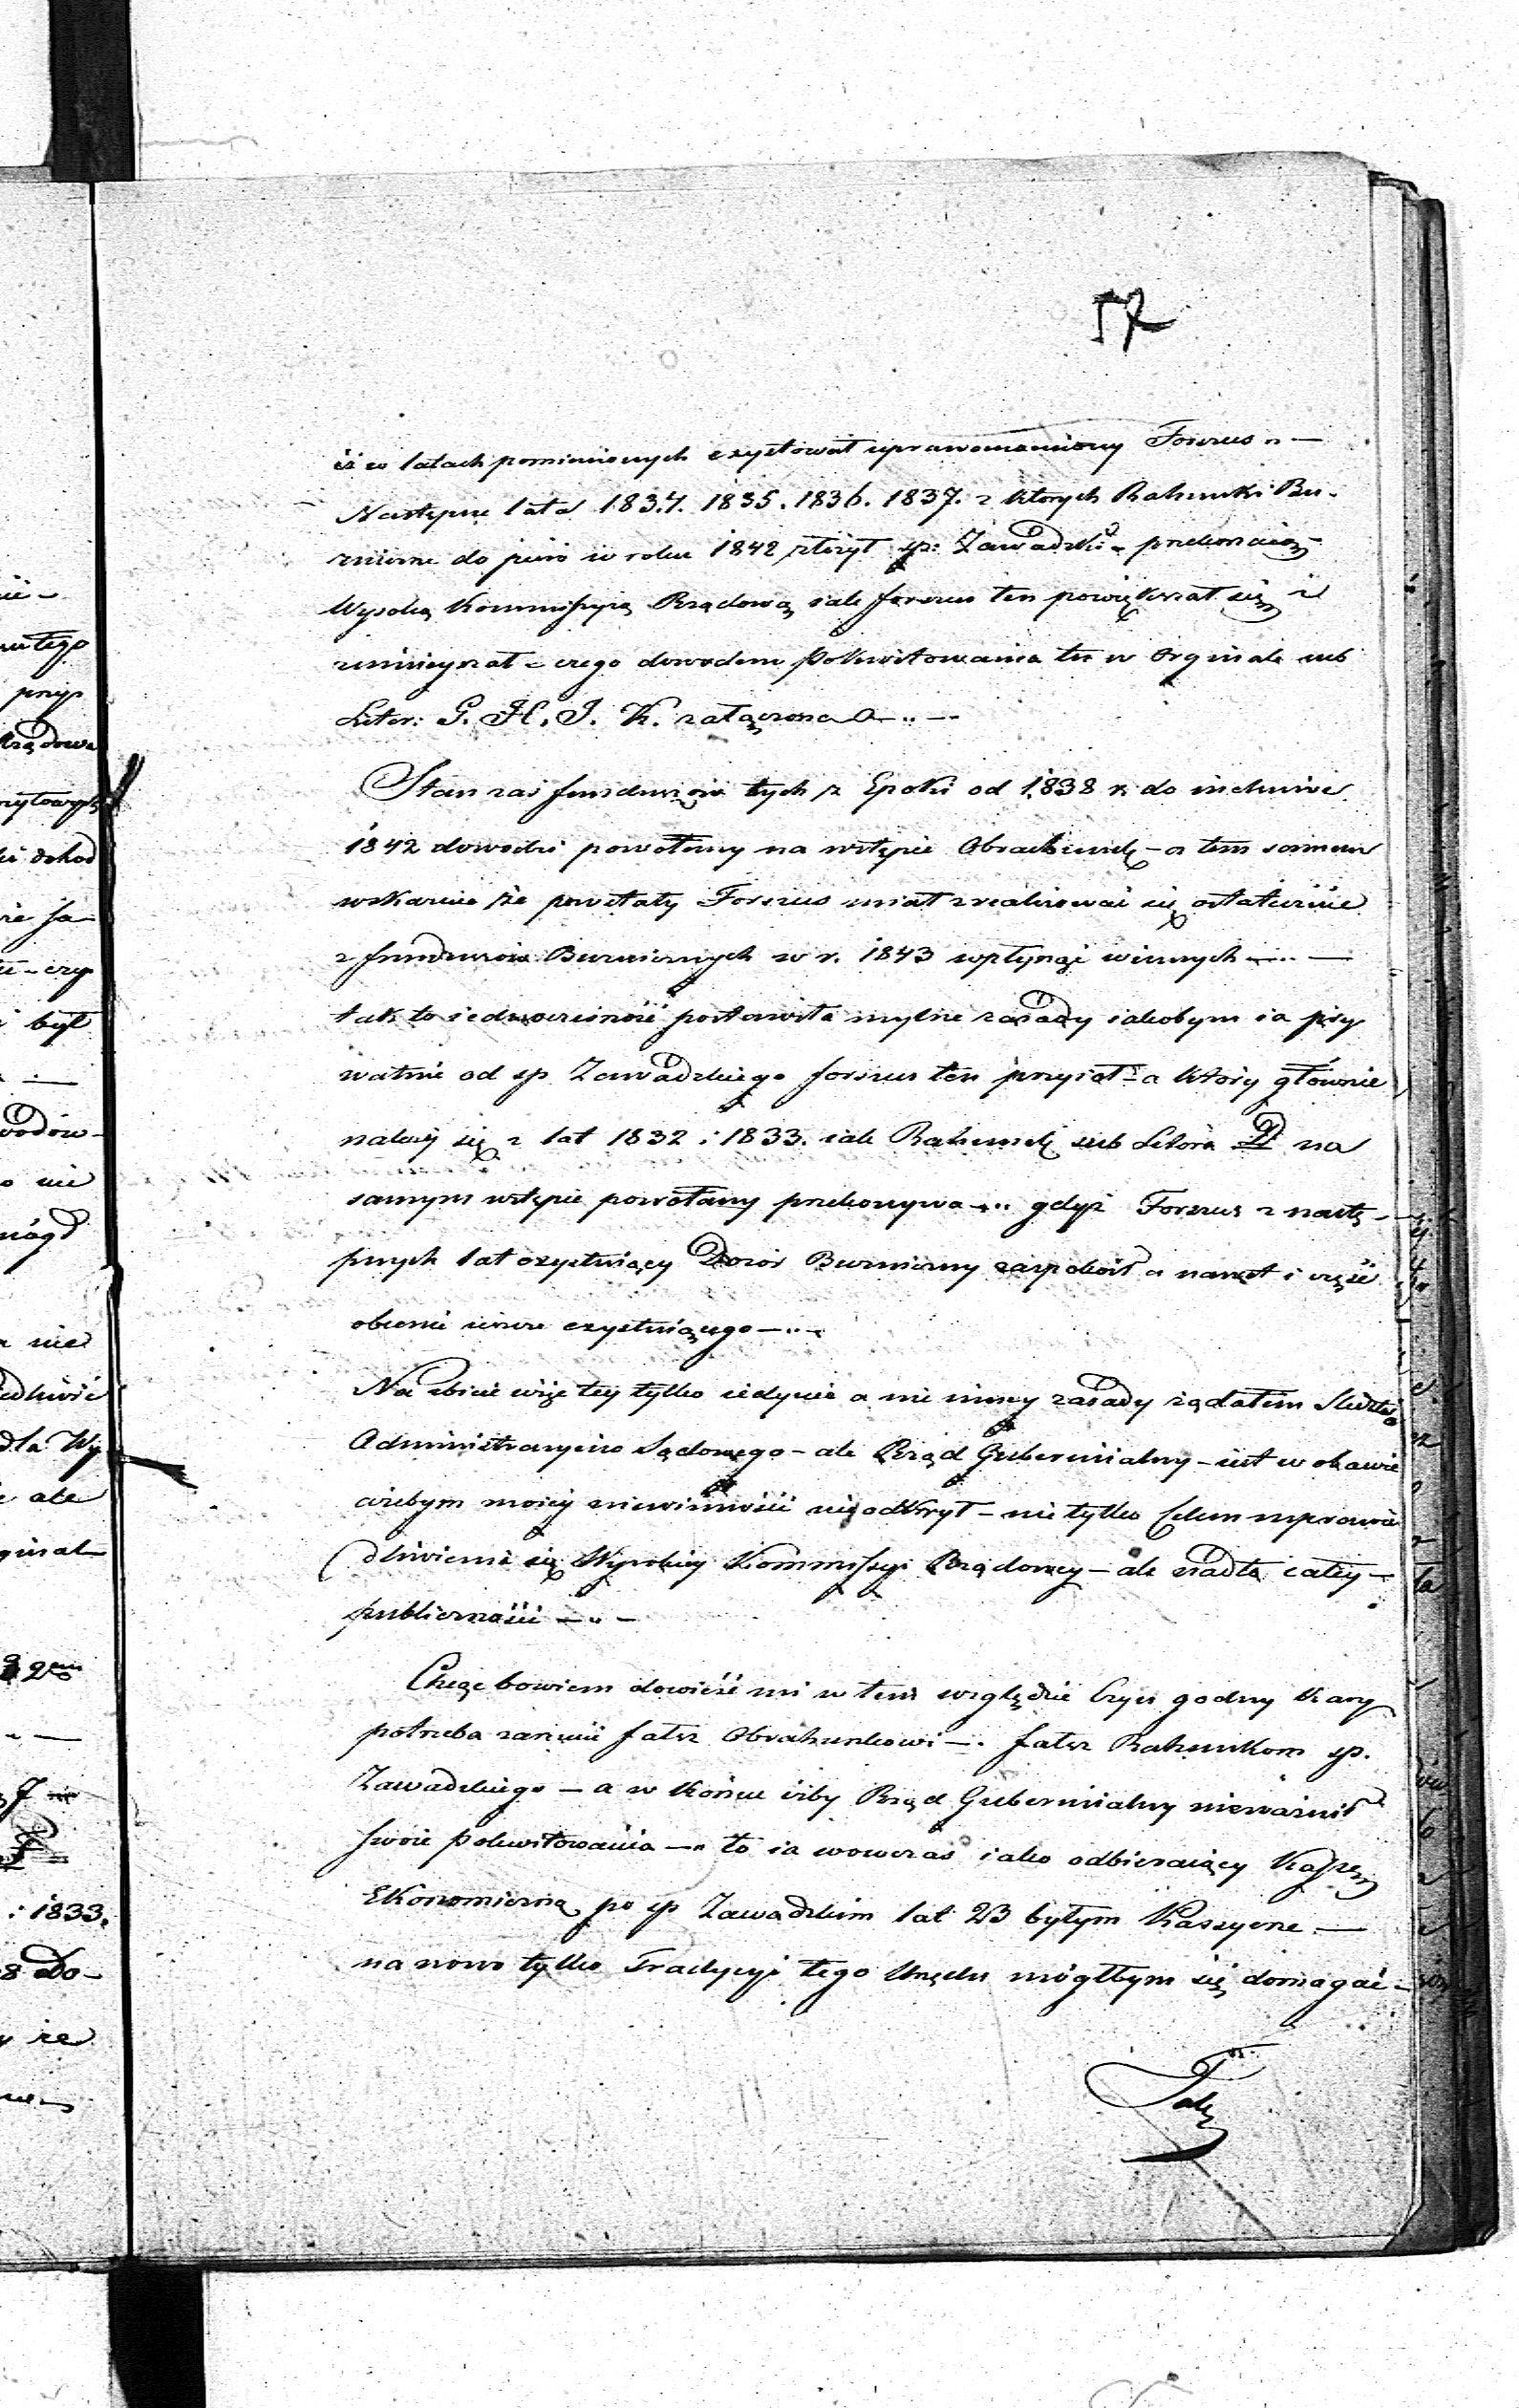 57
iż w latach pominionych exystował uprawomocniony Forszus „ —
Następne lata 1834. 1835. 1836. 1837. z których Rahunki Bu-
źnicne do piéro w roku 1842 złożył sp: Zawadzki - przekonaią
Wysoką Kommissyią Rządową iak forszus ten powiększał się i
zmnieyszał - czego dowodem Pokwitowania tu w Orginale sub
Liter: G. H. J. K. załączone —..—
Stan zaś funduszów tych z Epoki od 1838 r. do inclusive
1842 dowodzi powołany na wstępie Obrachunek - a tem samem
wskazuie że powstały Forszus miał zrealizować się ostatecznie
z funduszów Buźniczych w r. 1843 wpłynąć winnych —..—
tak to iednoczesność postawiła mylne zasady iakobym ia pry
watnie od sp Zawadzkiego forszus ten przyiął - a który głównie
należy się z lat 1832 i 1833. iak Rahunek sub Litera D na
samym wstępie powołany przekonywa —.. gdyż Forszus z nastę-
pnych lat exystuiący Dozór Buźniczny zaspokoił a nawet i część
obecnie ieszcze exystuiącego —..—
Na zbicie więc tey tylko iedynie a nie inney zasady żądałem Śledztwa
Administracyino Sądowego - ale Rząd Gubernialny - iest w obawie
ażebym moiéy niewinności nie odkrył - nie tylko Celem usprawie
dliwienia się Wysokiéy Kommissyi Rządowey - ale nadto całey -
publiczności —„—
Chcąc bowiem dowieść mi w tem względzie Czyn godny Kary
potrzeba zarzucić fałsz Obrahunkowi —. fałsz Rahunkom sp.
Zawadzkiego — a w końcu iżby Rząd Gubernialny unieważnił
swoie Pokwitowania —„ to ia wowczas iako odbieraiący Kassę
Ekonomiczną po sp Zawadzkim lat 23 byłym Kassyerze —
na nowo tylko Tradycyi tego Urzędu mógłbym się domagać -
Tak